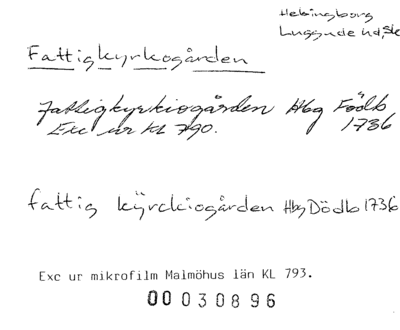 Helsingborg
Luggude hd, Sk
Fattigkyrkogården
Fattigkyrkiogården Hbg Födb
Exc ur KL 790. 1736
fattig kÿrckiogården Hbg Dödb 1736
Exc ur mikrofilm Malmöhus län KL 793.
00 030896